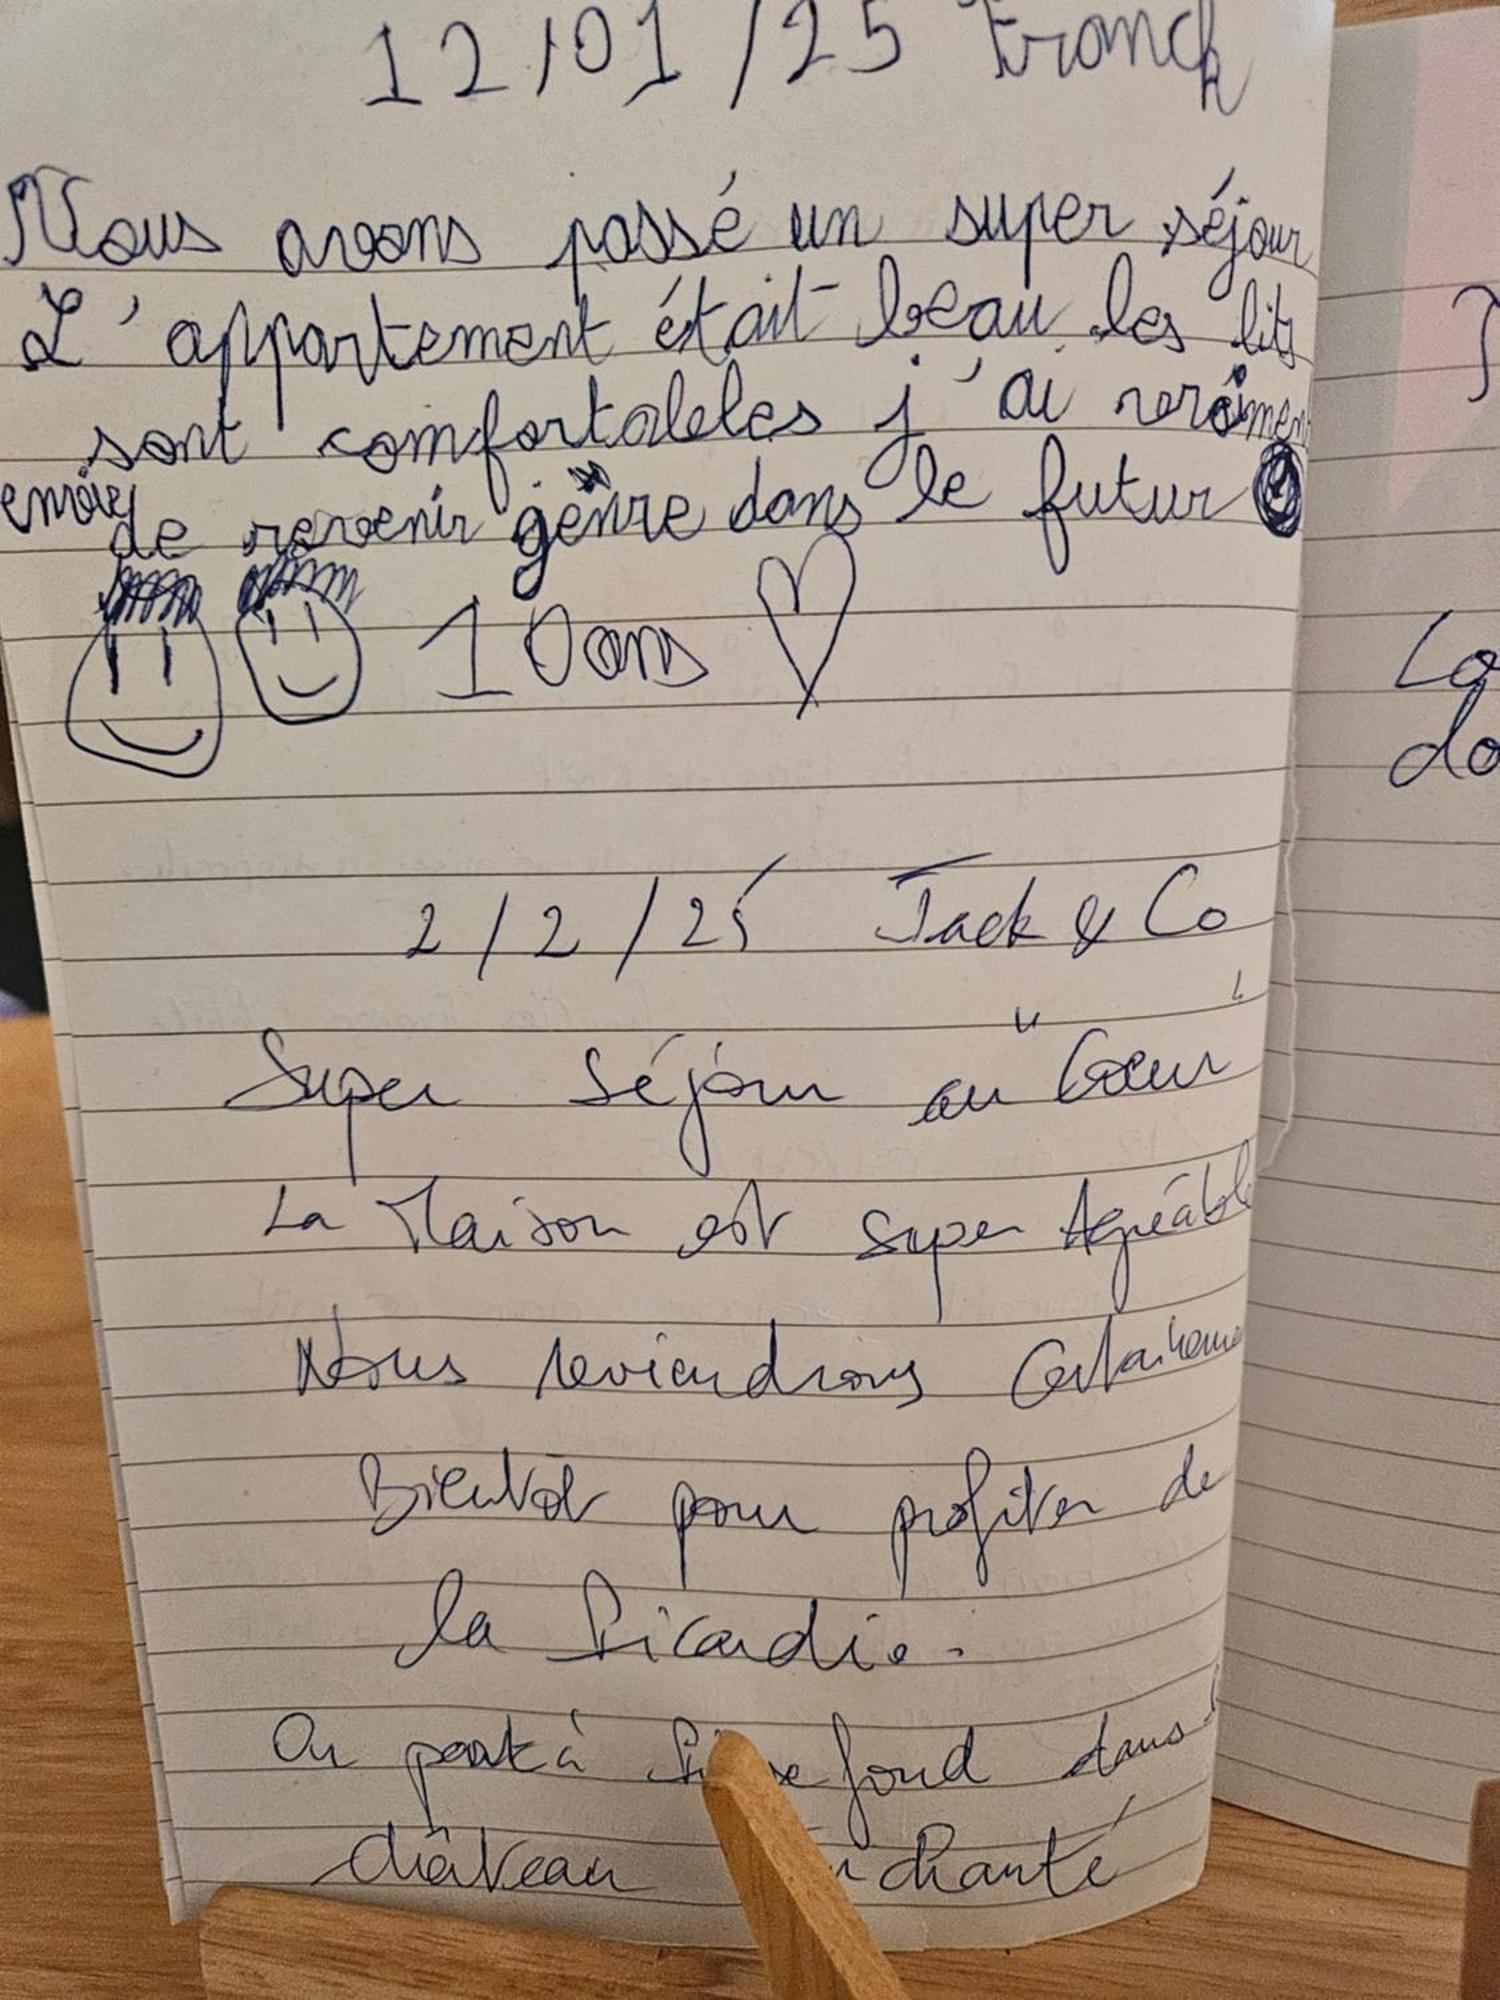 12/01/25 Franck
Nous avons passé un super séjour
L'appartement était beau les lits
sont comfortables j'ai vraiment
envie de revenir genre dans le futur
10 ans
2/2/25 Jack & Co
Super Séjour au "Coeur"
La Maison est super Agréable
Nous reviendrons Certainement
Bientôt pour profiter de
la Picardie.
On part à fond dans
château